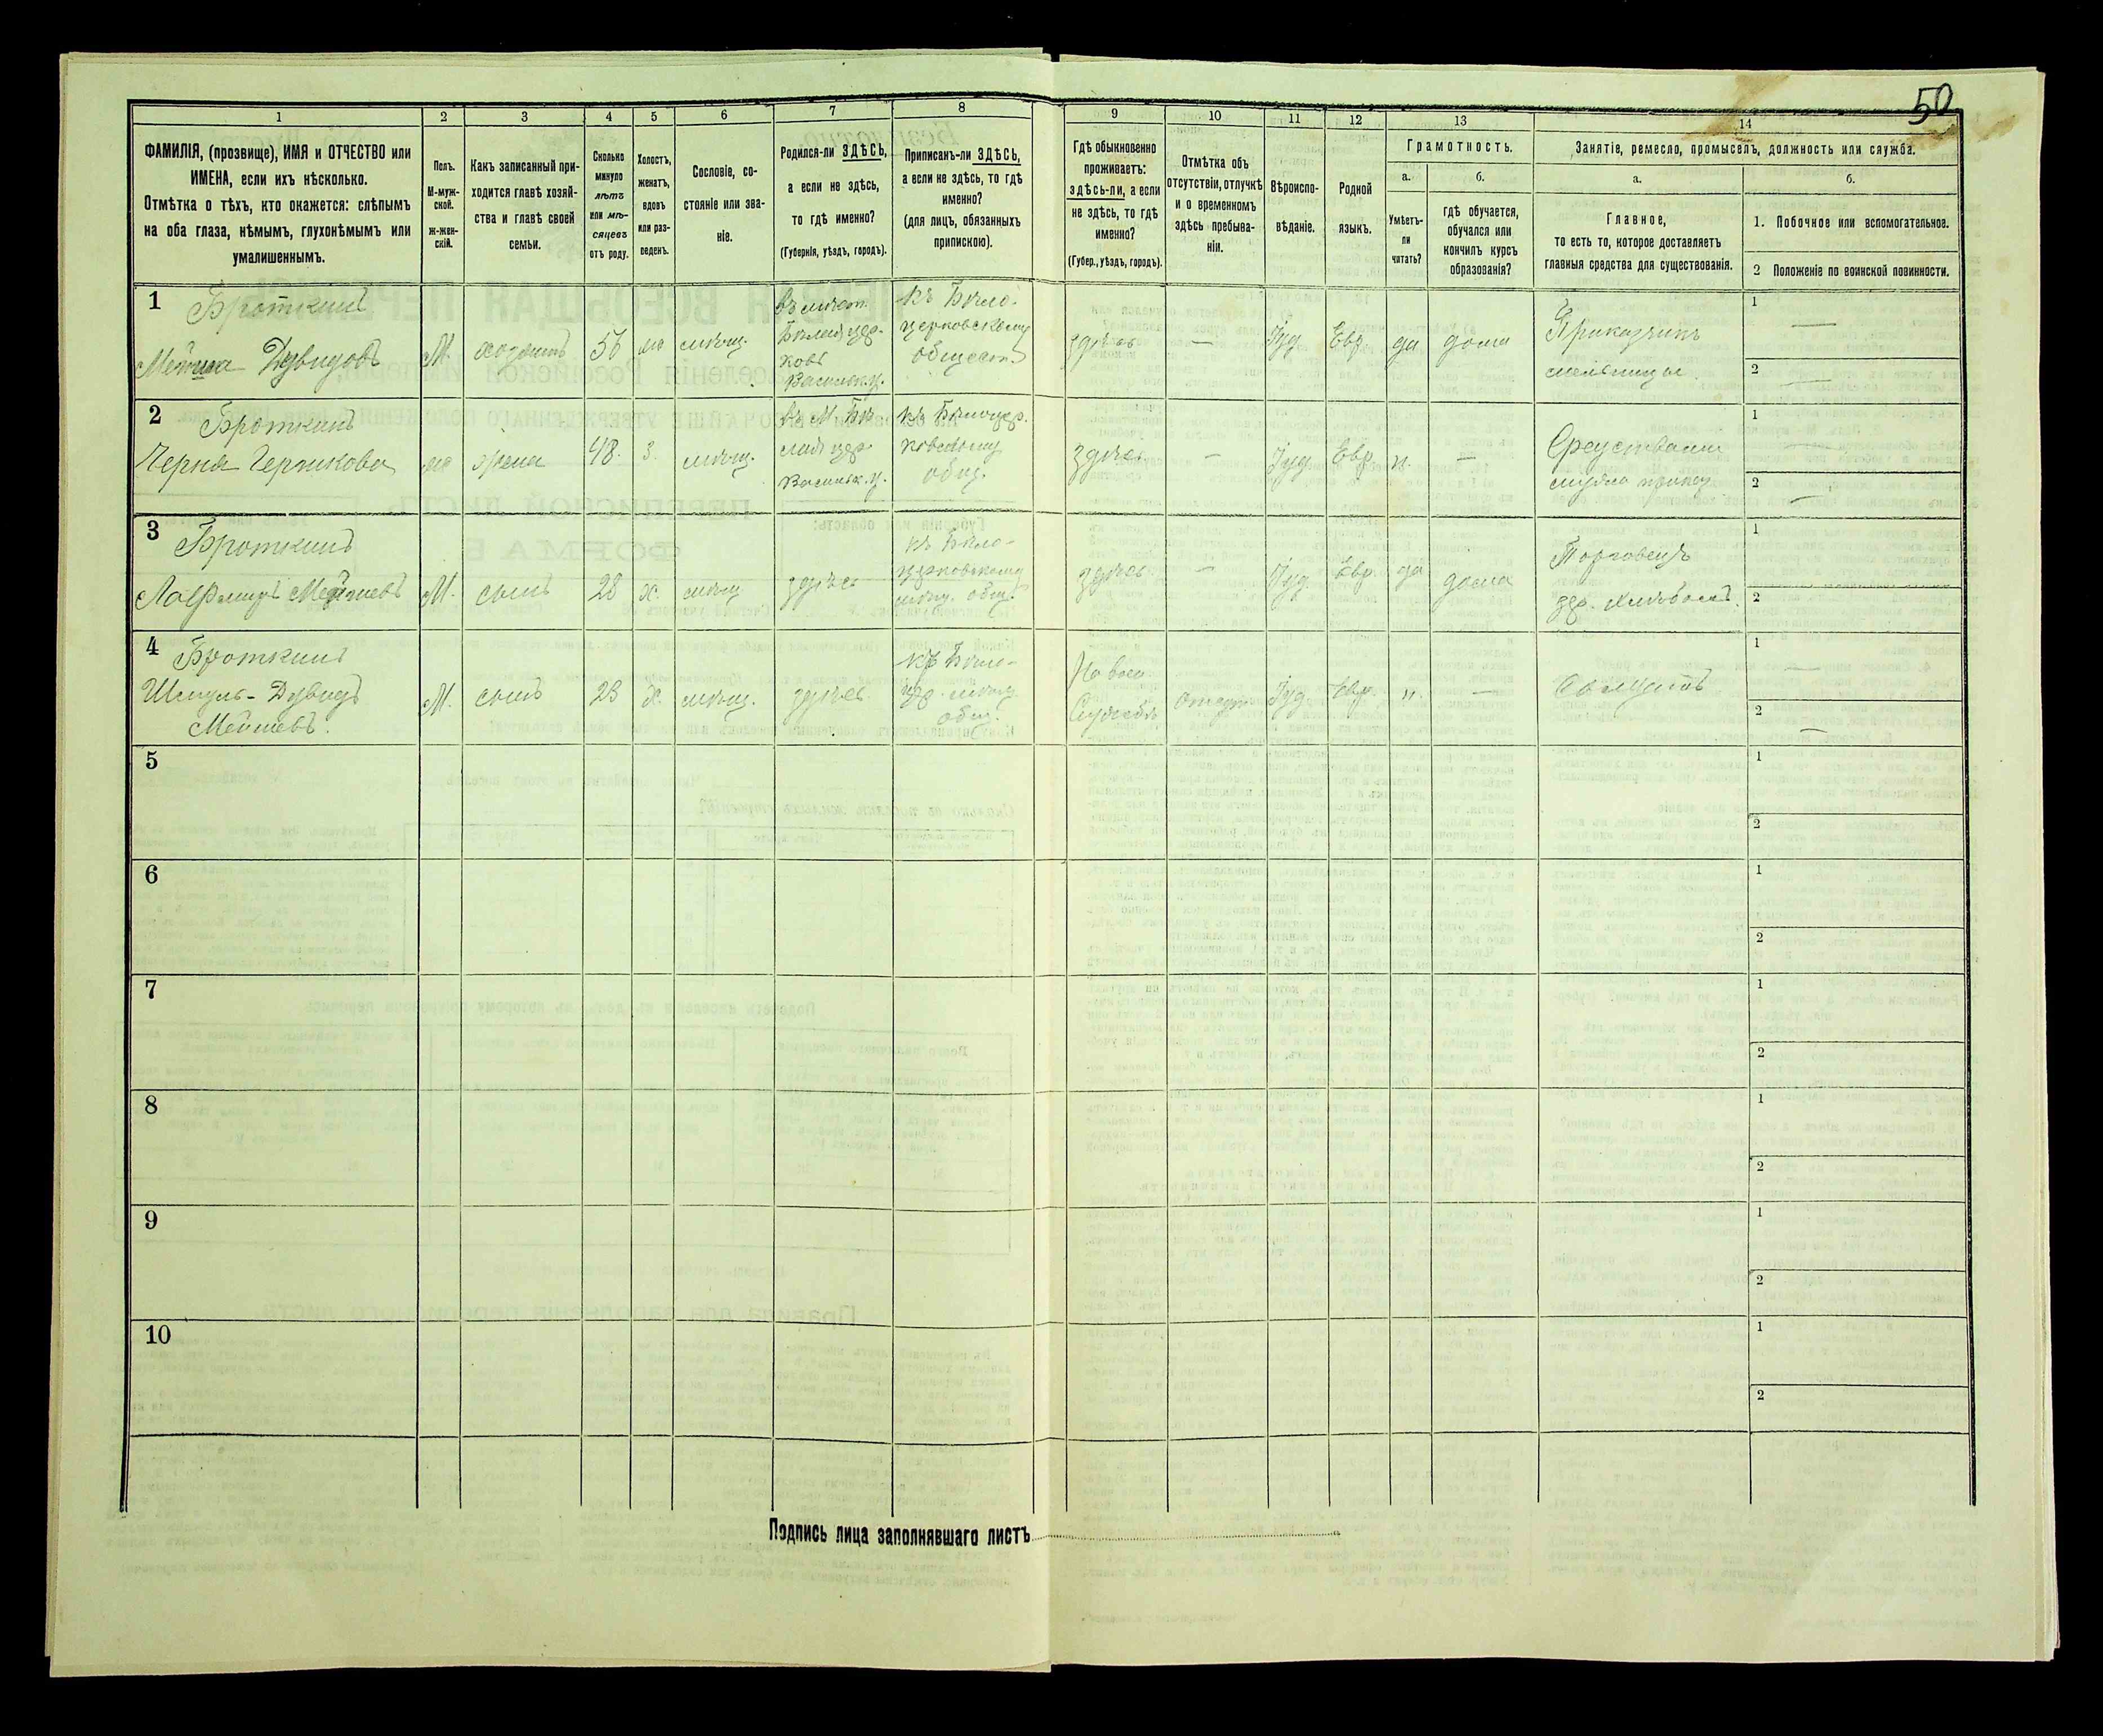 50
1
2
3
4
5
6
7
8
9
10
11
12
13
14
ФАМИЛІЯ, (прозвище), ИМЯ и ОТЧЕСТВО или
ИМЕНА, если ихъ нѣсколько.
Отмѣтка о тѣхъ, кто окажется: слѣпымъ
на оба глаза, нѣмымъ, глухонѣмымъ или
умалишеннымъ.
Полъ.
М-муж-
ской.
ж-жен-
скій.
Какъ записанный при-
ходится главѣ хозяй-
ства и главѣ своей
семьи.
Сколько
минуло
лѣтъ
или мѣ-
сяцевъ
отъ роду.
Холостъ,
женатъ,
вдовъ
или раз-
веденъ.
Сословіе, со-
стояніе или зва-
ніе.
Родился-ли ЗДѢСЬ,
а если не здѣсь,
то гдѣ именно?
(Губернія, уѣздъ, городъ).
Приписанъ-ли ЗДѢСЬ,
а если не здѣсь, то гдѣ
именно?
(для лицъ, обязанныхъ
припискою).
Гдѣ обыкновенно
проживаетъ:
здѣсь-ли, а если
не здѣсь, то гдѣ
именно?
(Губер., уѣздъ, городъ).
Отмѣтка объ
отсутствіи, отлучкѣ
и о временномъ
здѣсь пребыва-
ніи.
Вѣроиспо-
вѣданіе.
Родной
языкъ.
Грамотность.
а.
Умѣетъ-
ли
читать?
б.
гдѣ обучается,
обучался или
кончилъ курсъ
образованія?
Занятіе, ремесло, промыселъ, должность или служба.
а.
Главное,
то есть то, которое доставляетъ
главныя средства для существованія.
б.
1. Побочное или вспомогательное.
2 Положеніе по воинской повинности.
1
Броткинъ
Дувидовъ
М.
хозяинъ
56
мѣщ.
въ мѣст.
Бѣлой цер-
кови
Васильк. у.
къ Бѣло-
церковскому
обществ.
здѣсь
—
Іуд.
Евр.
да
дома
Приказчикъ
мельницы.
1 —
2 —
2
Броткинъ
Черня Гершкова
жена
48.
з.
мѣщ.
въ М. Бѣ
лой цер
Васильк. у.
къ Бѣлоцер.
ковскому
общ.
здѣсь
—
Іуд.
Евр.
н.
—
Средствами
мужа приказ
1 —
2 —
3
Броткинъ
М.
сынъ
28
х.
мѣщ
здѣсь
къ Бѣло-
церковскому
мѣщ. общ.
здѣсь
—
Іуд.
Евр.
да
дома
Торговецъ
хлѣбомъ.
1
2
4
Броткинъ
Шмуль-Дувидъ
М.
сынъ
23
х.
мѣщ.
здѣсь
къ Бѣло-
цер. мѣщ.
общ.
На воен
Службѣ
Отсут
Іуд.
Евр.
н.
—
Солдатъ
1 —
2 —
5
1
2
6
1
2
7
1
2
8
1
2
9
1
2
10
1
2
Подпись лица заполнявшаго листъ